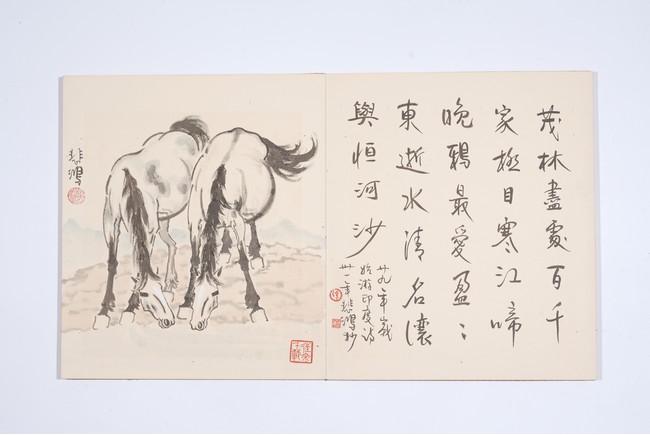 茂林盡處百千
家極目寒江啼
晚鴉最愛盈々
東逝水清名讓
與恒河沙
廿九年歲
始游印度詩
卅一年悲鴻抄
悲鴻